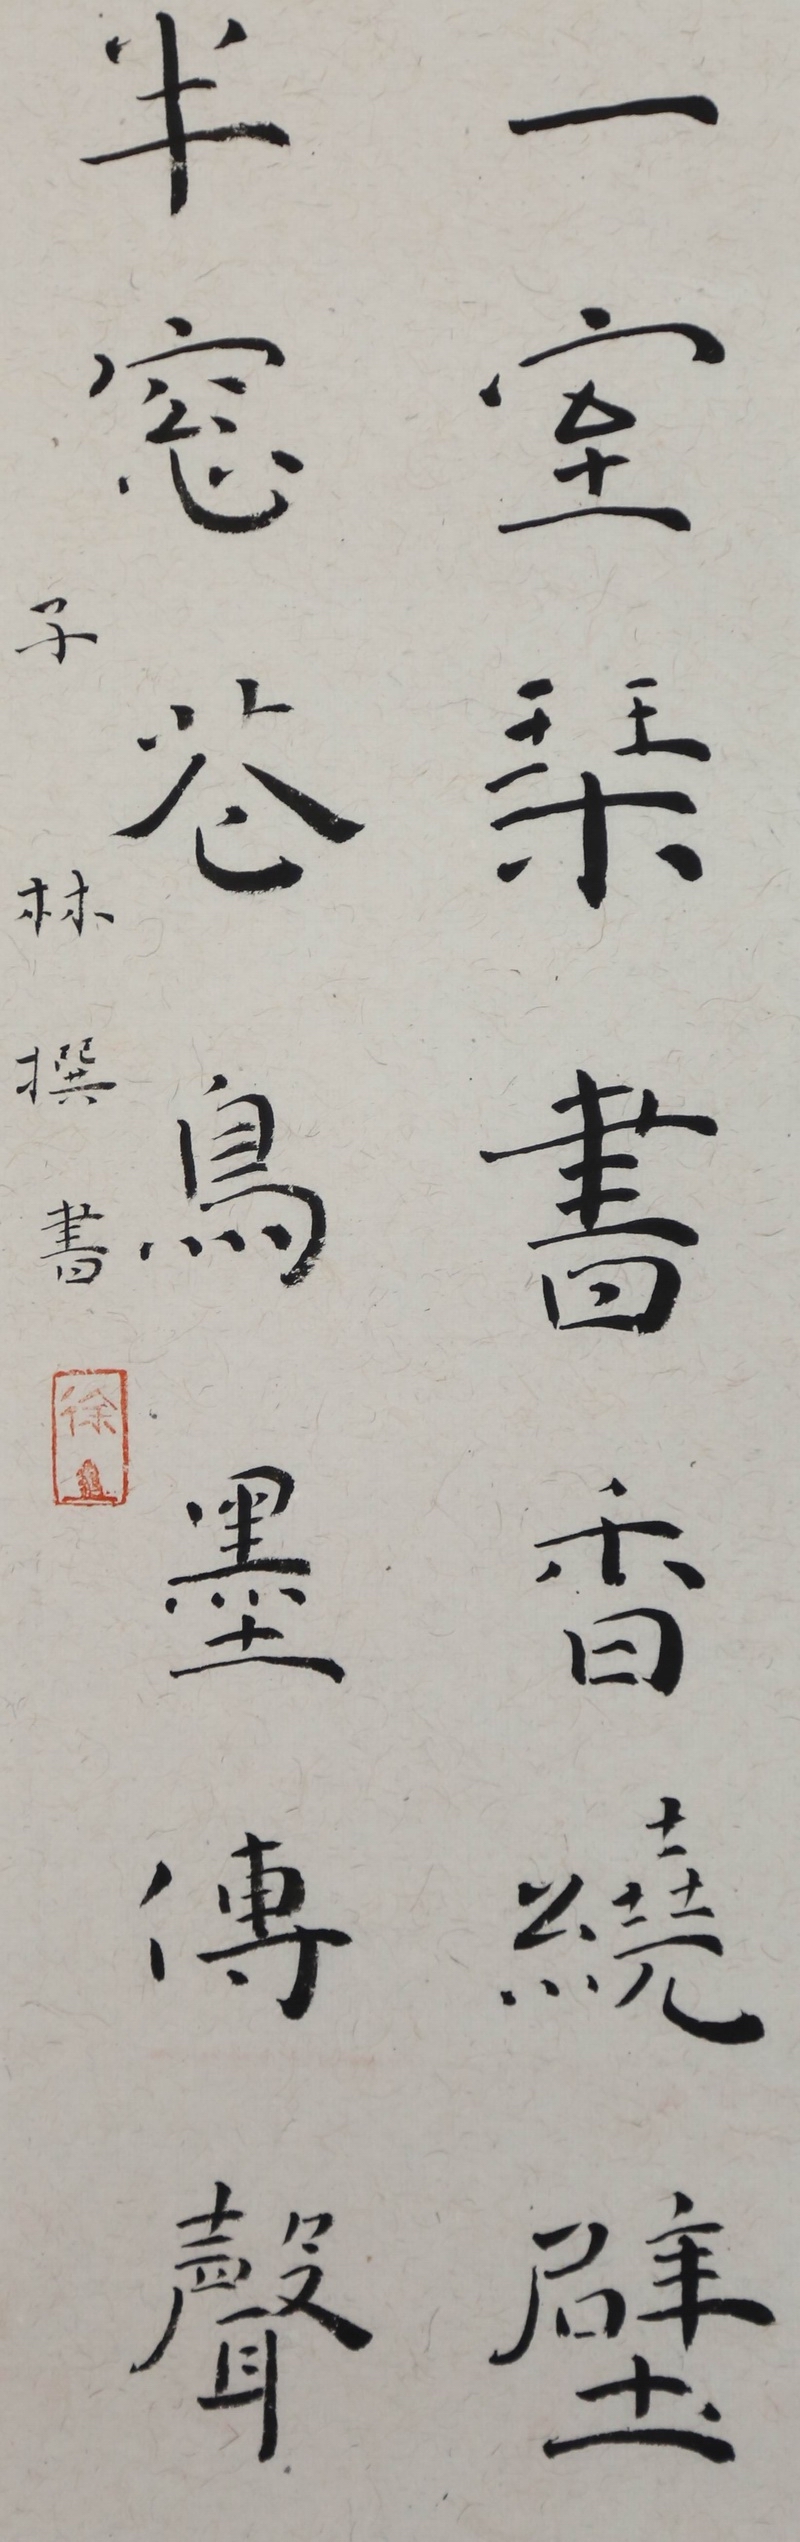 一室琹書香繞壁
半窓芲鳥墨傳聲
子林撰書
徐